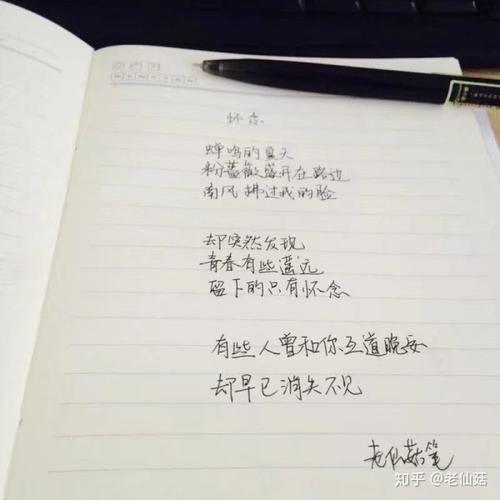 怀念
蝉鸣的夏天
粉蔷薇盛开在路边
南风拂过我的脸
却突然发现
青春有些遥远
留下的只有怀念
有些人曾和你互道晚安
却早已消失不见
老仙菇笔
知乎 @老仙菇